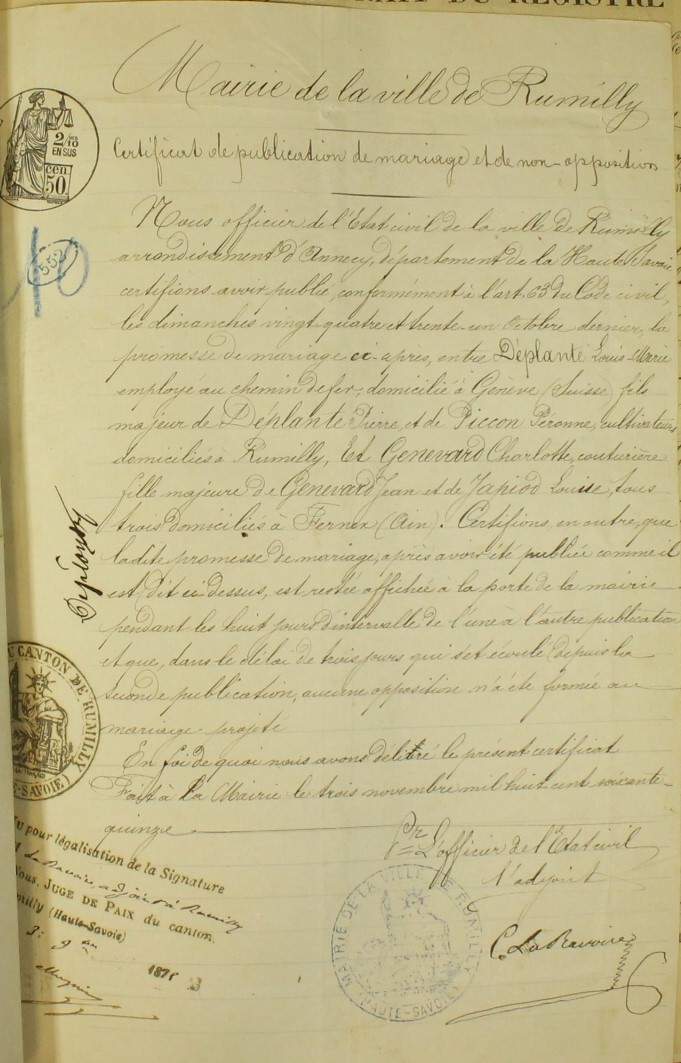 DU REGISTRE
Mairie de la ville de Rumilly
2/10
EN SUS
cen
50
Certificat de publication de mariage et de non-opposition
Nous officier de l'Etat civil de la ville de Rumilly
arrondissement d'Annecy, département de la Haute Savoie
certifions avoir publié, conformément à l'art. 63 du Code civil,
les dimanches vingt-quatre et trente-un Octobre dernier, la
promesse de mariage ci-après, entre Déplante Louis-Marie
employé au chemin de fer, domicilié à Genève (Suisse) fils
majeur de Déplante Pierre, et de Piccon Péronne, cultivateurs
domiciliés à Rumilly, Et Genevard Charlotte, couturière
fille majeure de Genevard Jean et de Japiod Louise, tous
trois domiciliés à Fernex (Ain). Certifions, en outre, que
la dite promesse de mariage, après avoir été publiée comme il
est dit ci dessus, est restée affichée à la porte de la mairie
pendant les huit jours d'intervalle de l'une a l'autre publication
et que, dans le délai de trois jours qui s'est écoulé depuis la
seconde publication, aucune opposition n'a été formée au
mariage projeté
En foi de quoi nous avons délivré le présent certificat
Fait à La Mairie le trois novembre mil huit cent soixante-
quinze
Pr. L'officier de l'Etat civil
l'adjoint
C. La Ravoire
MAIRIE DE LA VILLE DE RUMILLY
(HAUTE-SAVOIE)
DU CANTON DE RUMILLY
-SAVOIE)
Vu pour légalisation de la Signature
La Ravoire, adjoint Rumilly
Nous, JUGE DE PAIX du canton
(Haute-Savoie)
187